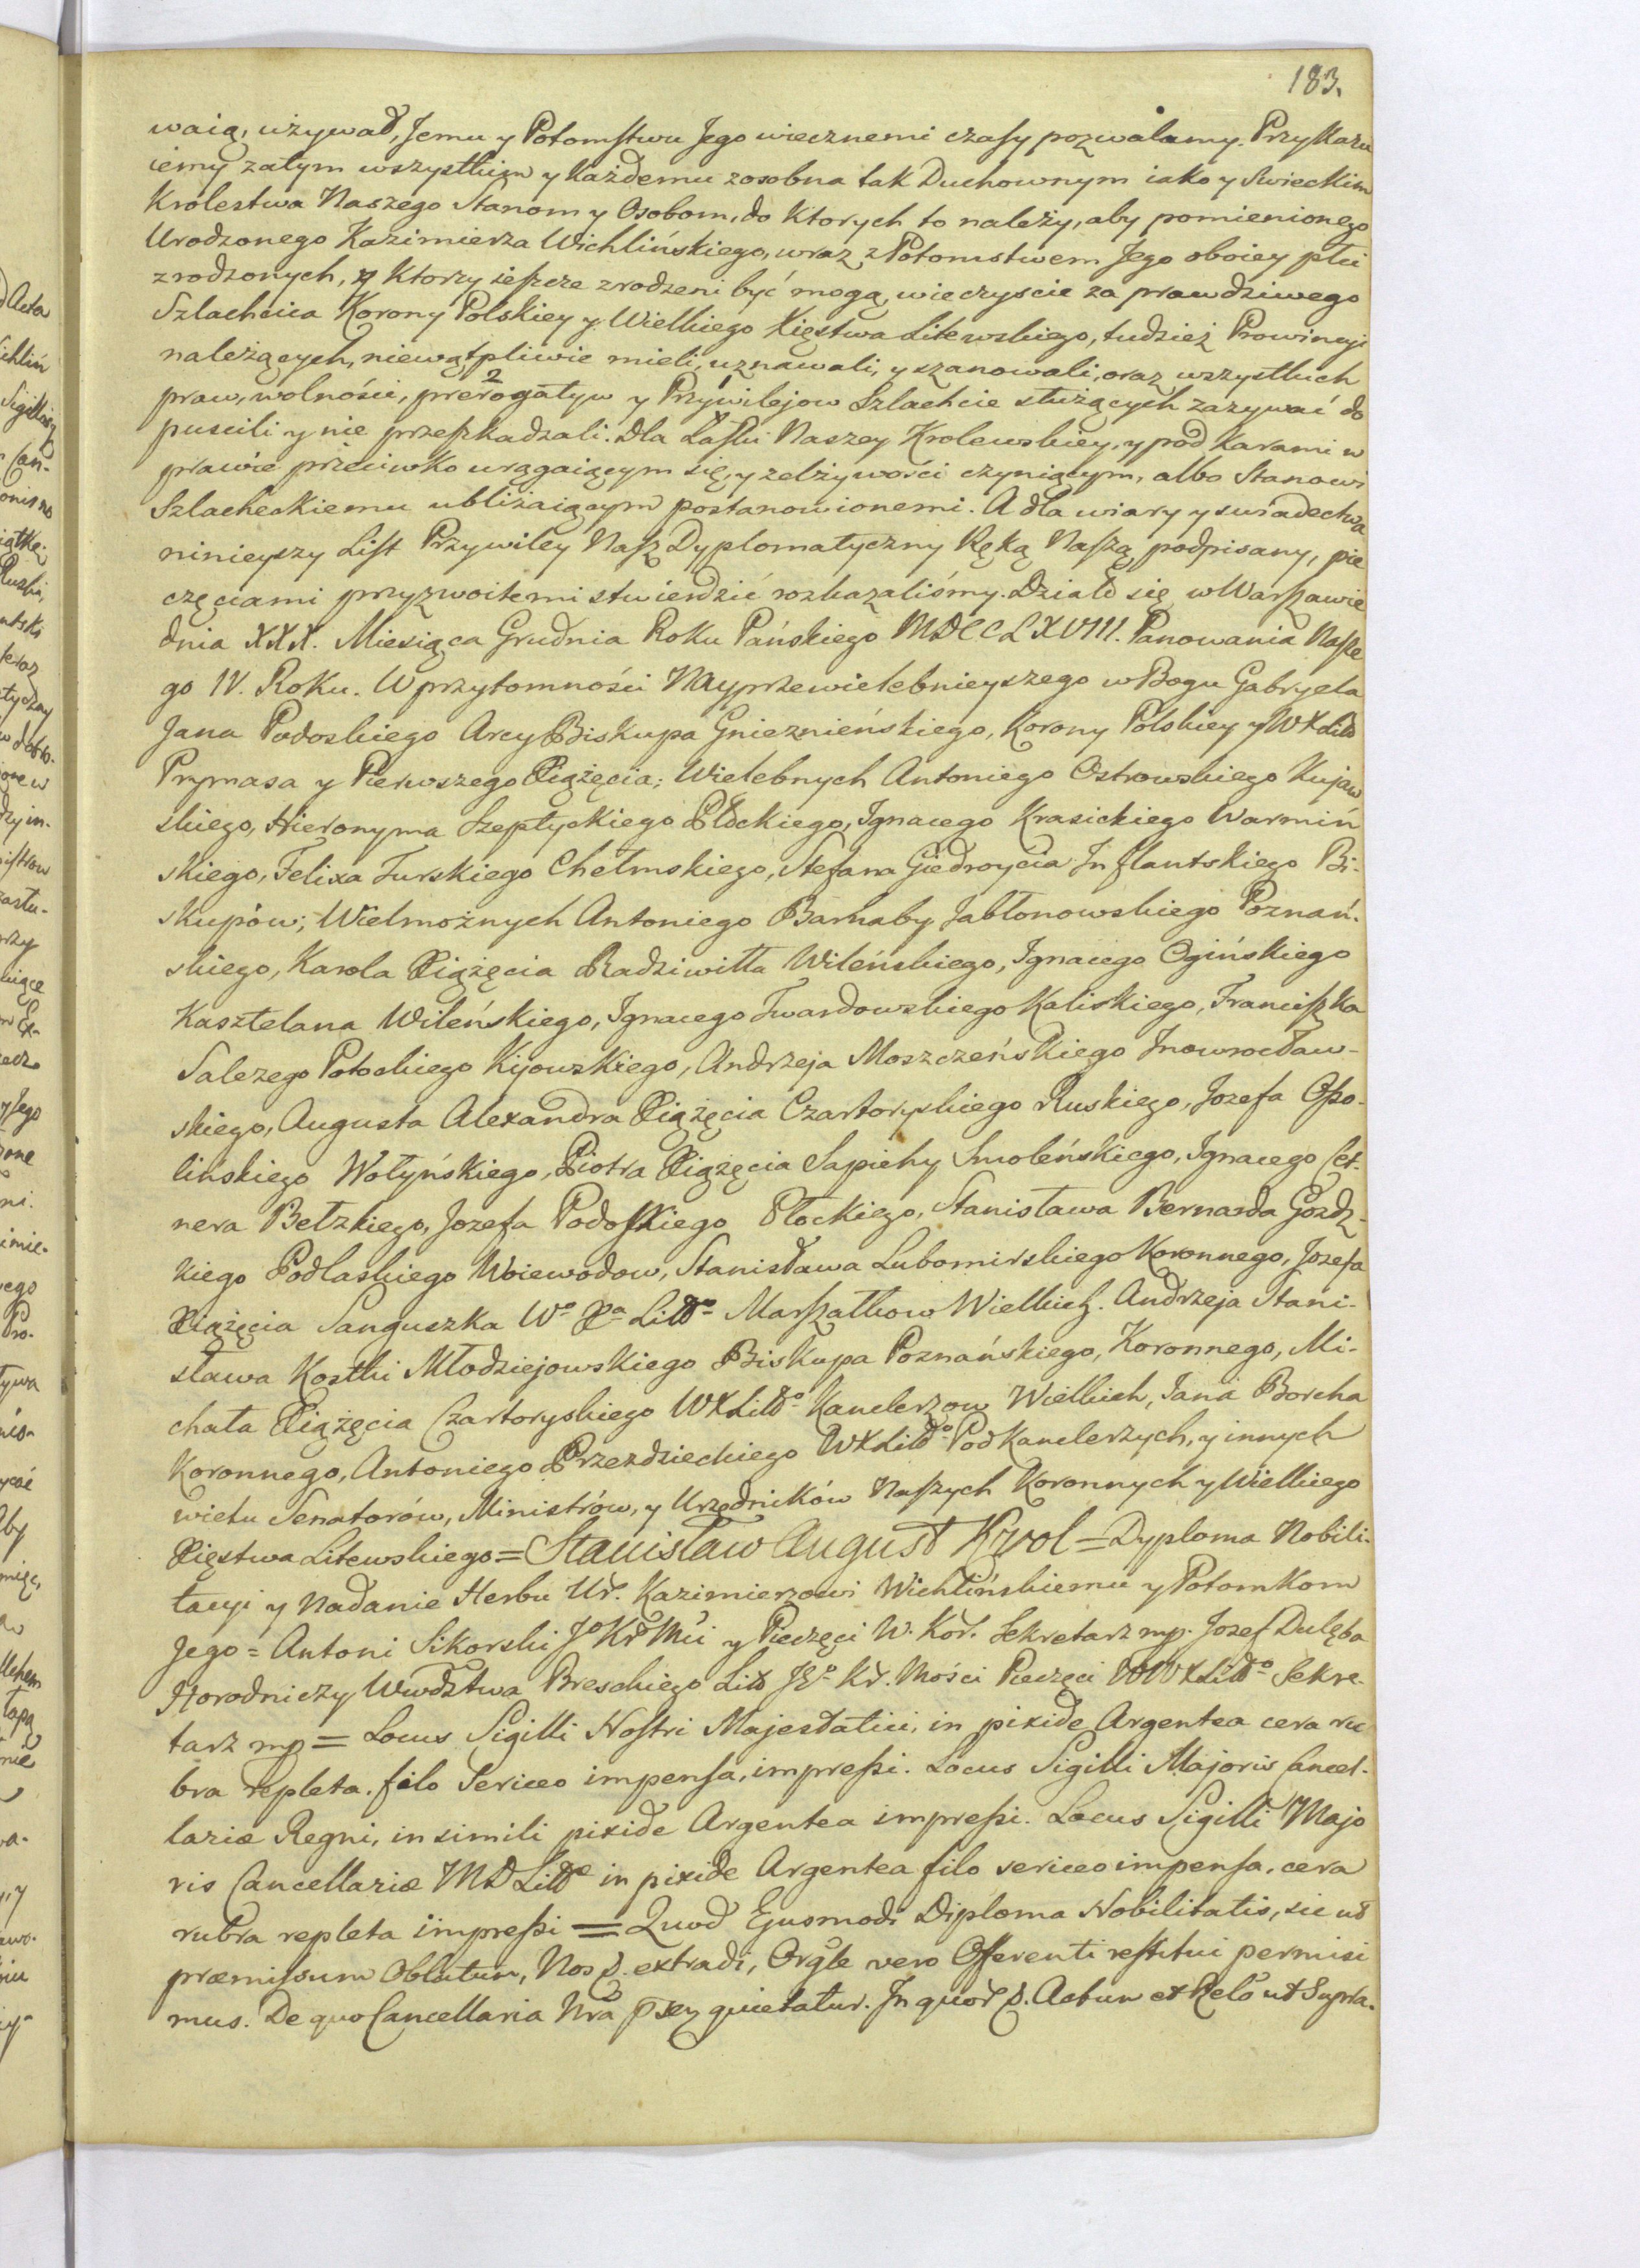 183.
waią, używał, Jemu y Potomstwu Jego wiecznemi czasy pozwalamy. Przykazu
iemy zatym wszystkim y każdemu zosobna tak Duchownym iako y Swieckim
Krolestwa Naszego Stanom y Osobom, do Ktorych to należy, aby pomienionego
Urodzonego Kazimierza Wichlińskiego, wraz z Potomstwem Jego oboiey płci
zrodzonych, y Ktorzy ieszcze zrodzeni być mogą, wieczyscie za prawdziwego
Szlachcica Korony Polskiey y Wielkiego Xięstwa Litewskiego, tudzież Prowincyi
należących, niewątpliwie mieli, uznawali, y szanowali, oraz wszystkich
praw, wolności, prerogatyw y Przywilejow Szlachcie służących zażywać do
puscili y nie przeszkadzali. Dla Łaski Naszey Krolewskiey, y pod karami w
prawie przeciwko urągaiącym się, y zelżywości czyniącym, albo Stanowi
Szlacheckiemu ubliżaiącym postanowionemi. A dla wiary y swiadectwa
ninieyszy List Przywiley Nasz Dyplomatyczny Ręką Naszą podpisany, pie
częciami przyzwoitemi stwierdzić rozkazaliśmy. Działo się w Warszawie
dnia XXX. Miesiąca Grudnia Roku Pańskiego MDCCLXVIII. Panowania Nasze
go IV. Roku. W przytomności Nayprzewielebnieyszego w Bogu Gabryela
Jana Podoskiego Arcy Biskupa Gnieznieńskiego, Korony Polskiey y WXLitt
Prymasa y Pierwszego Xiążęcia; Wielebnych Antoniego Ostrowskiego Kujaw
skiego, Hieronyma Szeptyckiego Płockiego, Ignacego Krasickiego Warmiń
skiego, Felixa Turskiego Chełmskiego, Stefana Giedroycia Inflantskiego Bi-
skupów; Wielmożnych Antoniego Barnaby Jabłonowskiego Poznań-
skiego, Karola Xiążęcia Radziwiłła Wileńskiego, Ignacego Ogińskiego
Kasztelana Wileńskiego, Ignacego Twardowskiego Kaliskiego, Franciszka
Salezego Potockiego Kijowskiego, Andrzeja Moszczeńskiego Inowrocław-
skiego, Augusta Alexandra Xiążęcia Czartoryskiego Ruskiego, Jozefa Osso-
lińskiego Wołyńskiego, Piotra Xiążęcia Sapiehy Smoleńskiego, Ignacego Cet-
nera Bełzkiego, Jozefa Podoskiego Płockiego, Stanisława Bernarda Gozdz-
kiego Podlaskiego Woiewodow, Stanisława Lubomirskiego Koronnego, Jozefa
Xiążęcia Sanguszka Wo Xa Litto Marszałkow Wielkich. Andrzeja Stani-
sława Kostki Młodziejowskiego Biskupa Poznańskiego, Koronnego, Mi-
chała Xiążęcia Czartoryskiego WXLitto Kanclerzow Wielkich, Jana Borcha
Koronnego, Antoniego Przezdzieckiego WXLitto Podkanclerzych, y innych
wielu Senatorów, Ministrów, y Urzędników Naszych Koronnych y Wielkiego
Xięstwa Litewskiego = Stanisław August Krol = Dyploma Nobili-
tacyi y Nadanie Herbu Ur. Kazimierzowi Wichlińskiemu y Potomkom
Jego = Antoni Sikorski Jo Kr Mci y Pieczęci W. Kor. Sekretarz mp. Jozef Dulęba
Horodniczy Wwdztwa Breskiego Litt JEo Kr. Mości Pieczęci WWXLitto Sekre-
tarz mp = Locus Sigilli Nostri Majestatici, in pixide Argentea cera ru
bra repleta, filo Sericeo impensa, impressi. Locus Sigilli Majoris Cancel-
lariæ Regni, in simili pixide Argentea impressi. Locus Sigilli Majo
ris Cancellariæ MDLittæ in pixide Argentea filo sericeo impensa, cera
rubra repleta impressi = Quod Ejusmodi Diploma Nobilitatis, sic ut
præmissum Oblatum, Nos extradi, Orgle vero Offerenti restitui permisi
mus. De quo Cancellaria Nra quietatur. In quor Actum et Relo ut Supra.